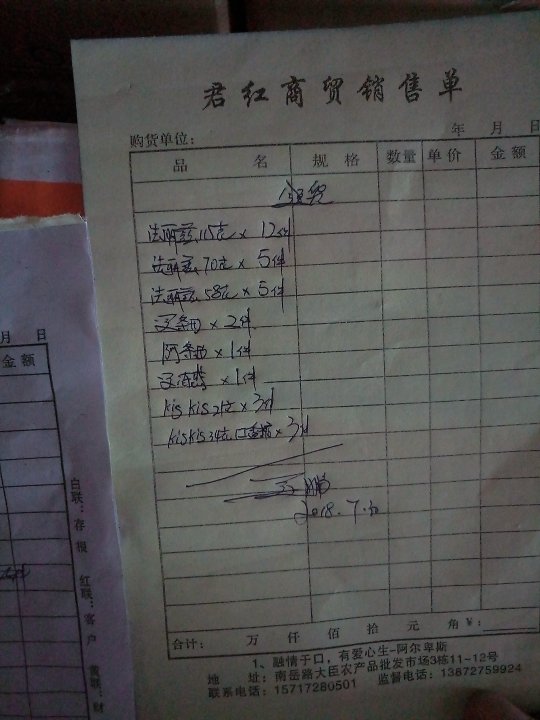 君红商贸销售单
购货单位： 年 月 日
品 名 规 格 数量 单价 金额
法丽兹115克×12件
法丽兹70克×5件
法丽兹58克×5件
×2件
阿 ×1件
×1件
kiskis21克×3件
kiskis34克口香糖×3件
2018.7.
合计： 万 仟 佰 拾 元 角 ¥：
1、融情于口，有爱心生-阿尔卑斯
地 址：南岳路大臣农产品批发市场3栋11-12号
联系电话：15717280501 监督电话：13872759924
月 日
金额
白联：存根 红联：客户 黄联：财